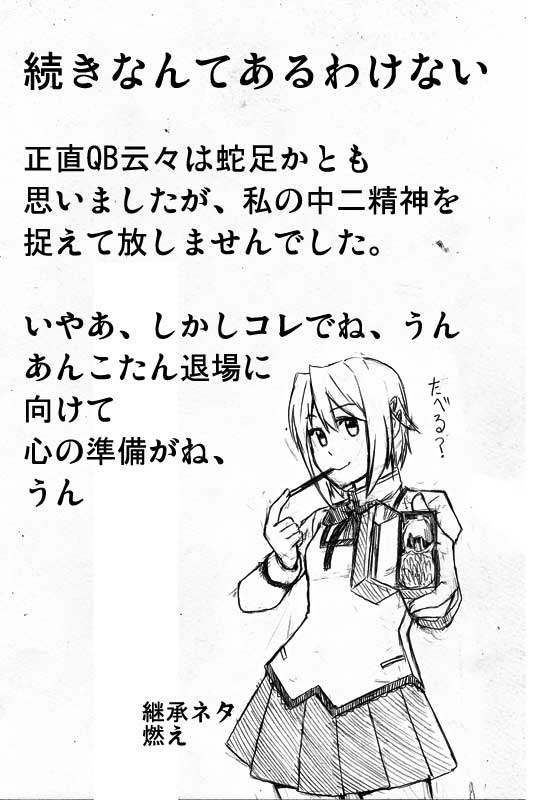 続きなんてあるわけない
正直QB云々は蛇足かとも
思いましたが、私の中二精神を
捉えて放しませんでした。
いやあ、しかしコレでね、うん
あんこたん退場に
向けて
心の準備がね、
うん
たべる?
継承ネタ
燃え